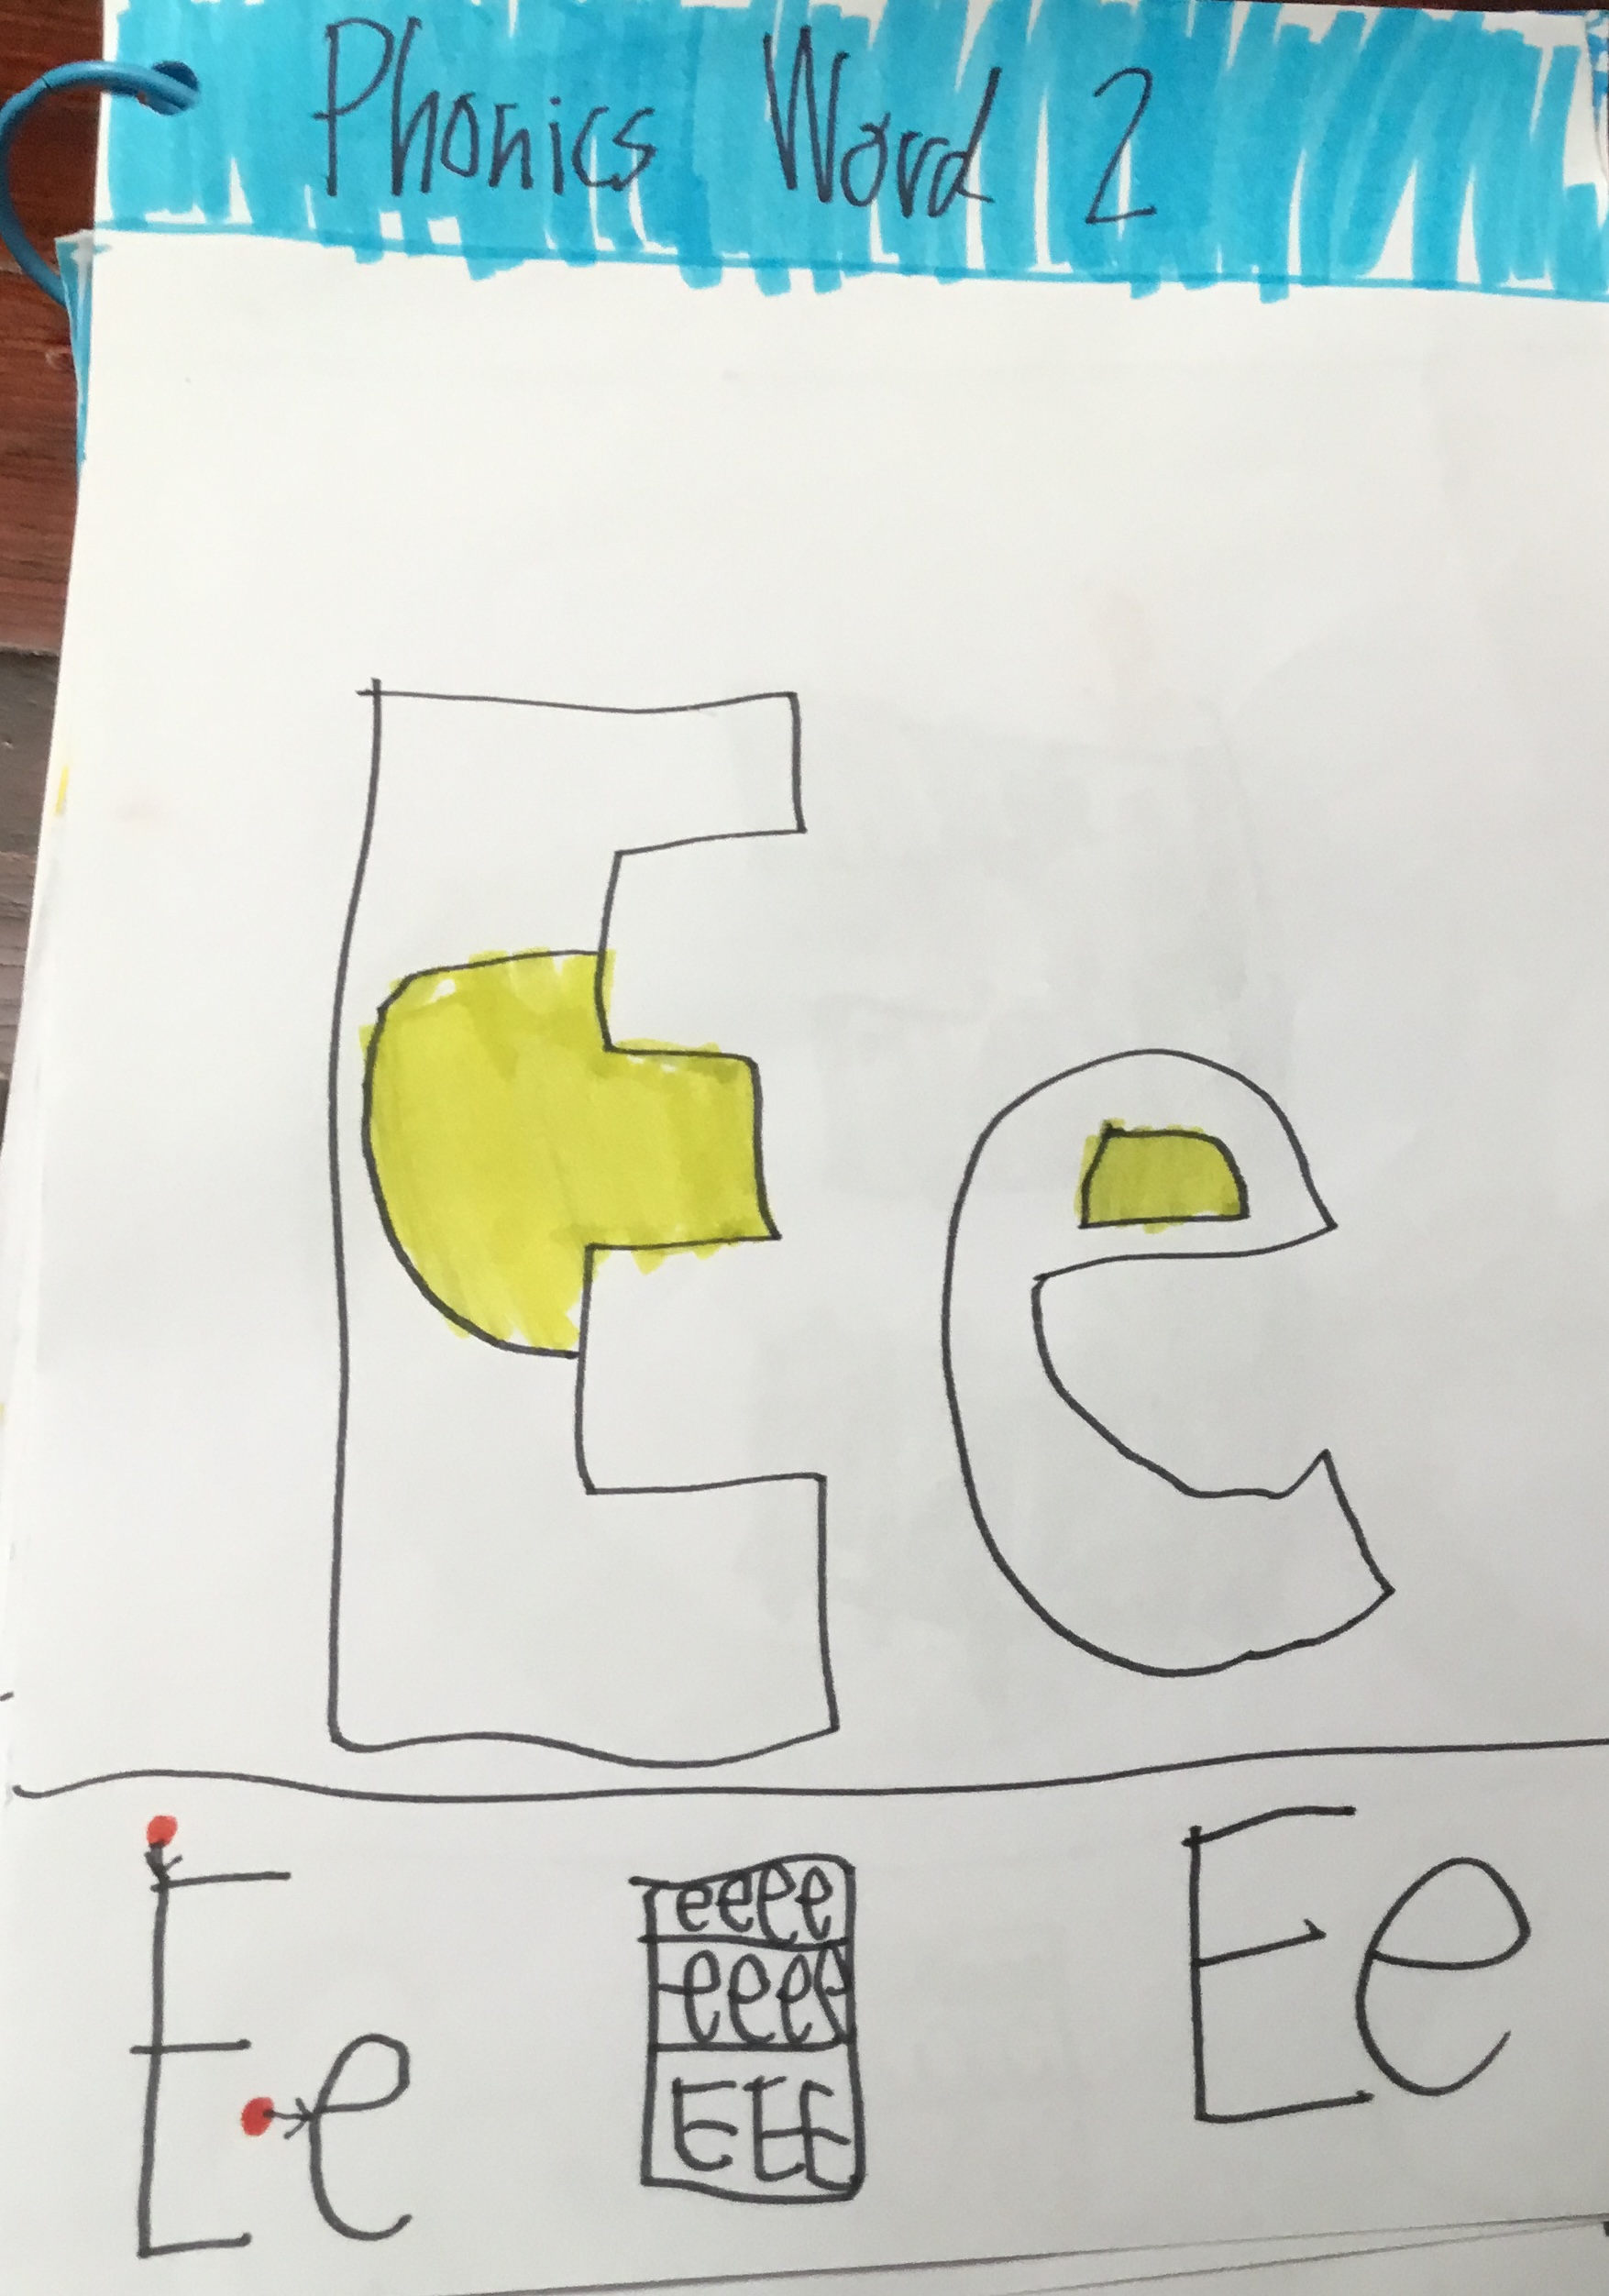 Phonics Word 2
Ee
Ee
eeee
eeee
EEE
Ee